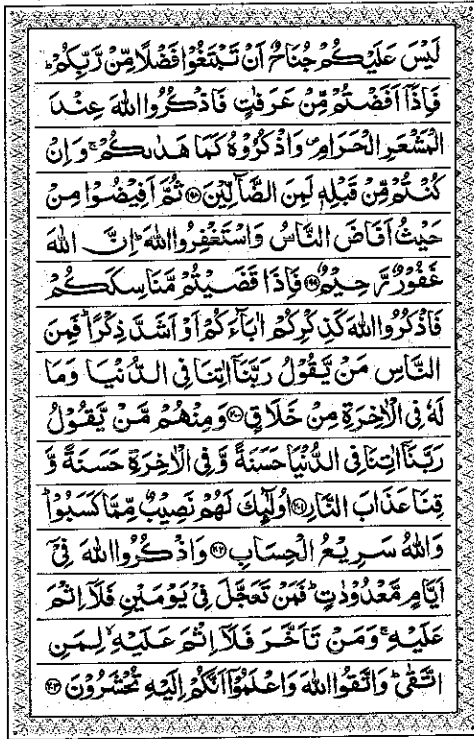 لَيۡسَ عَلَيۡكُمۡ جُنَاحٌ اَنۡ تَبۡتَغُوۡا فَضۡلًا مِّنۡ رَّبِّكُمۡؕ
فَاِذَآ اَفَضۡتُمۡ مِّنۡ عَرَفٰتٍ فَاذۡكُرُوا اللّٰهَ عِنۡدَ
الۡمَشۡعَرِ الۡحَرَامِ وَاذۡكُرُوۡهُ كَمَا هَدٰٮكُمۡۚ وَاِنۡ
كُنۡتُمۡ مِّنۡ قَبۡلِهٖ لَمِنَ الضَّآلِّيۡنَ ۱۹۸ ثُمَّ اَفِيۡضُوۡا مِنۡ
حَيۡثُ اَفَاضَ النَّاسُ وَاسۡتَغۡفِرُوا اللّٰهَؕ اِنَّ اللّٰهَ
غَفُوۡرٌ رَّحِيۡمٌ ۱۹۹ فَاِذَا قَضَيۡتُمۡ مَّنَاسِكَكُمۡ
فَاذۡكُرُوا اللّٰهَ كَذِكۡرِكُمۡ اٰبَآءَكُمۡ اَوۡ اَشَدَّ ذِكۡرًاؕ فَمِنَ
النَّاسِ مَنۡ يَّقُوۡلُ رَبَّنَآ اٰتِنَا فِى الدُّنۡيَا وَمَا
لَهٗ فِى الۡاٰخِرَةِ مِنۡ خَلَاقٍ ۲۰۰ وَمِنۡهُمۡ مَّنۡ يَّقُوۡلُ
رَبَّنَآ اٰتِنَا فِى الدُّنۡيَا حَسَنَةً وَّفِى الۡاٰخِرَةِ حَسَنَةً وَّ
قِنَا عَذَابَ النَّارِ ۲۰۱ اُولٰٓئِكَ لَهُمۡ نَصِيۡبٌ مِّمَّا كَسَبُوۡاؕ
وَاللّٰهُ سَرِيۡعُ الۡحِسَابِ ۲۰۲ وَاذۡكُرُوا اللّٰهَ فِىۡٓ
اَيَّامٍ مَّعۡدُوۡدٰتٍؕ فَمَنۡ تَعَجَّلَ فِىۡ يَوۡمَيۡنِ فَلَآ اِثۡمَ
عَلَيۡهِۚ وَمَنۡ تَاَخَّرَ فَلَآ اِثۡمَ عَلَيۡهِۙ لِمَنِ
اتَّقٰىؕ وَاتَّقُوا اللّٰهَ وَاعۡلَمُوۡٓا اَنَّكُمۡ اِلَيۡهِ تُحۡشَرُوۡنَ ۲۰۳